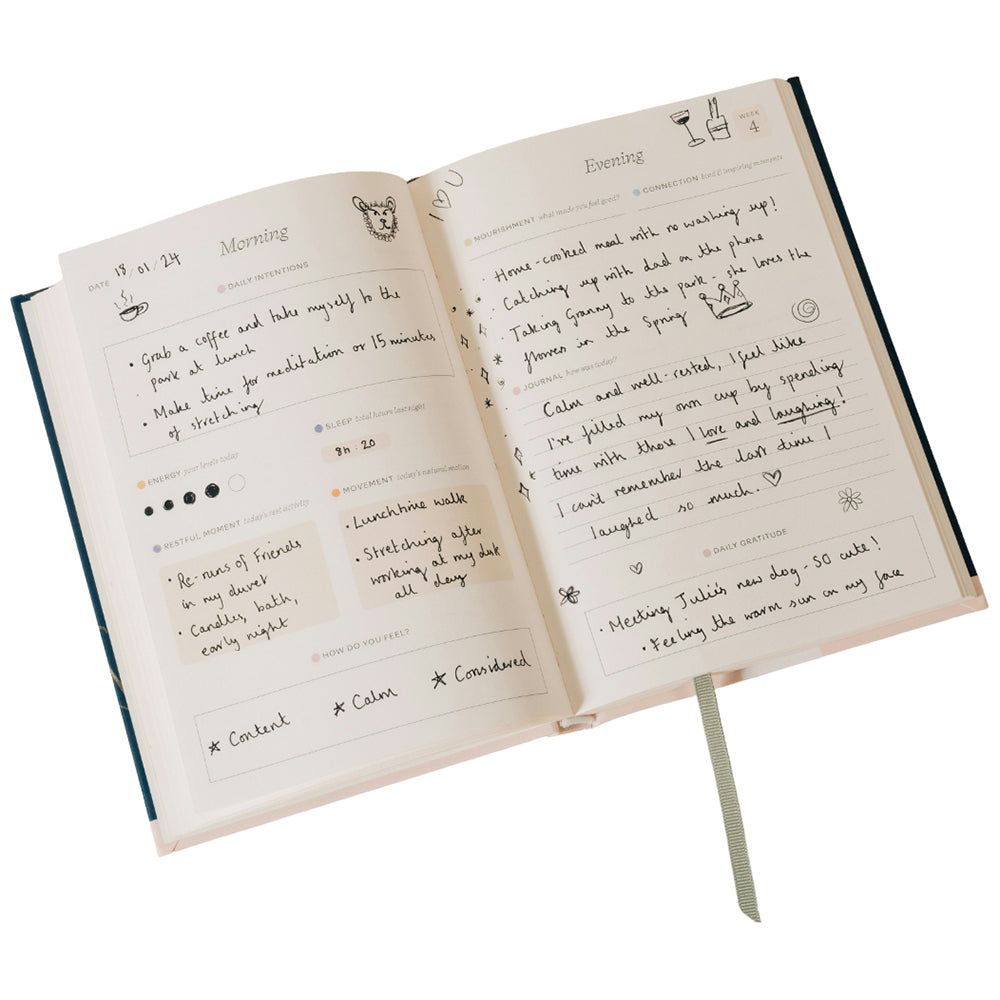 Morning
DATE 18/01/24
DAILY INTENTIONS
• Grab a coffee and take myself to the
park at lunch
• Make time for meditation or 15 minutes
of stretching
ENERGY your levels today
SLEEP total hours last night
8h : 20
RESTFUL MOMENT today's rest activity
• Re-runs of Friends
in my duvet
• Candles, bath,
early night
MOVEMENT today's natural motion
• Lunchtime walk
• Stretching after
working at my desk
all day
HOW DO YOU FEEL?
Content
Calm
Considered
Evening
WEEK
4
NOURISHMENT what made you feel good?
CONNECTION kind & inspiring moments
• Home-cooked meal with no washing up!
• Catching up with dad on the phone
• Taking Granny to the park - she loves the
flowers in the Spring
JOURNAL how was today?
Calm and well-rested, I feel like
I've filled my own cup by spending
time with those I love and laughing!
I can't remember the last time I
laughed so much.
DAILY GRATITUDE
• Meeting Julia's new dog - SO cute!
• Feeling the warm sun on my face